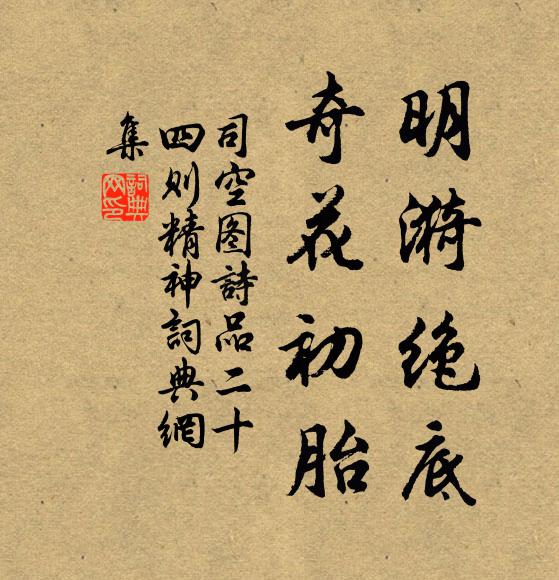 明漪绝底
奇花初胎
司空图詩品二十
四则精神詞典網
集
詞典
网印